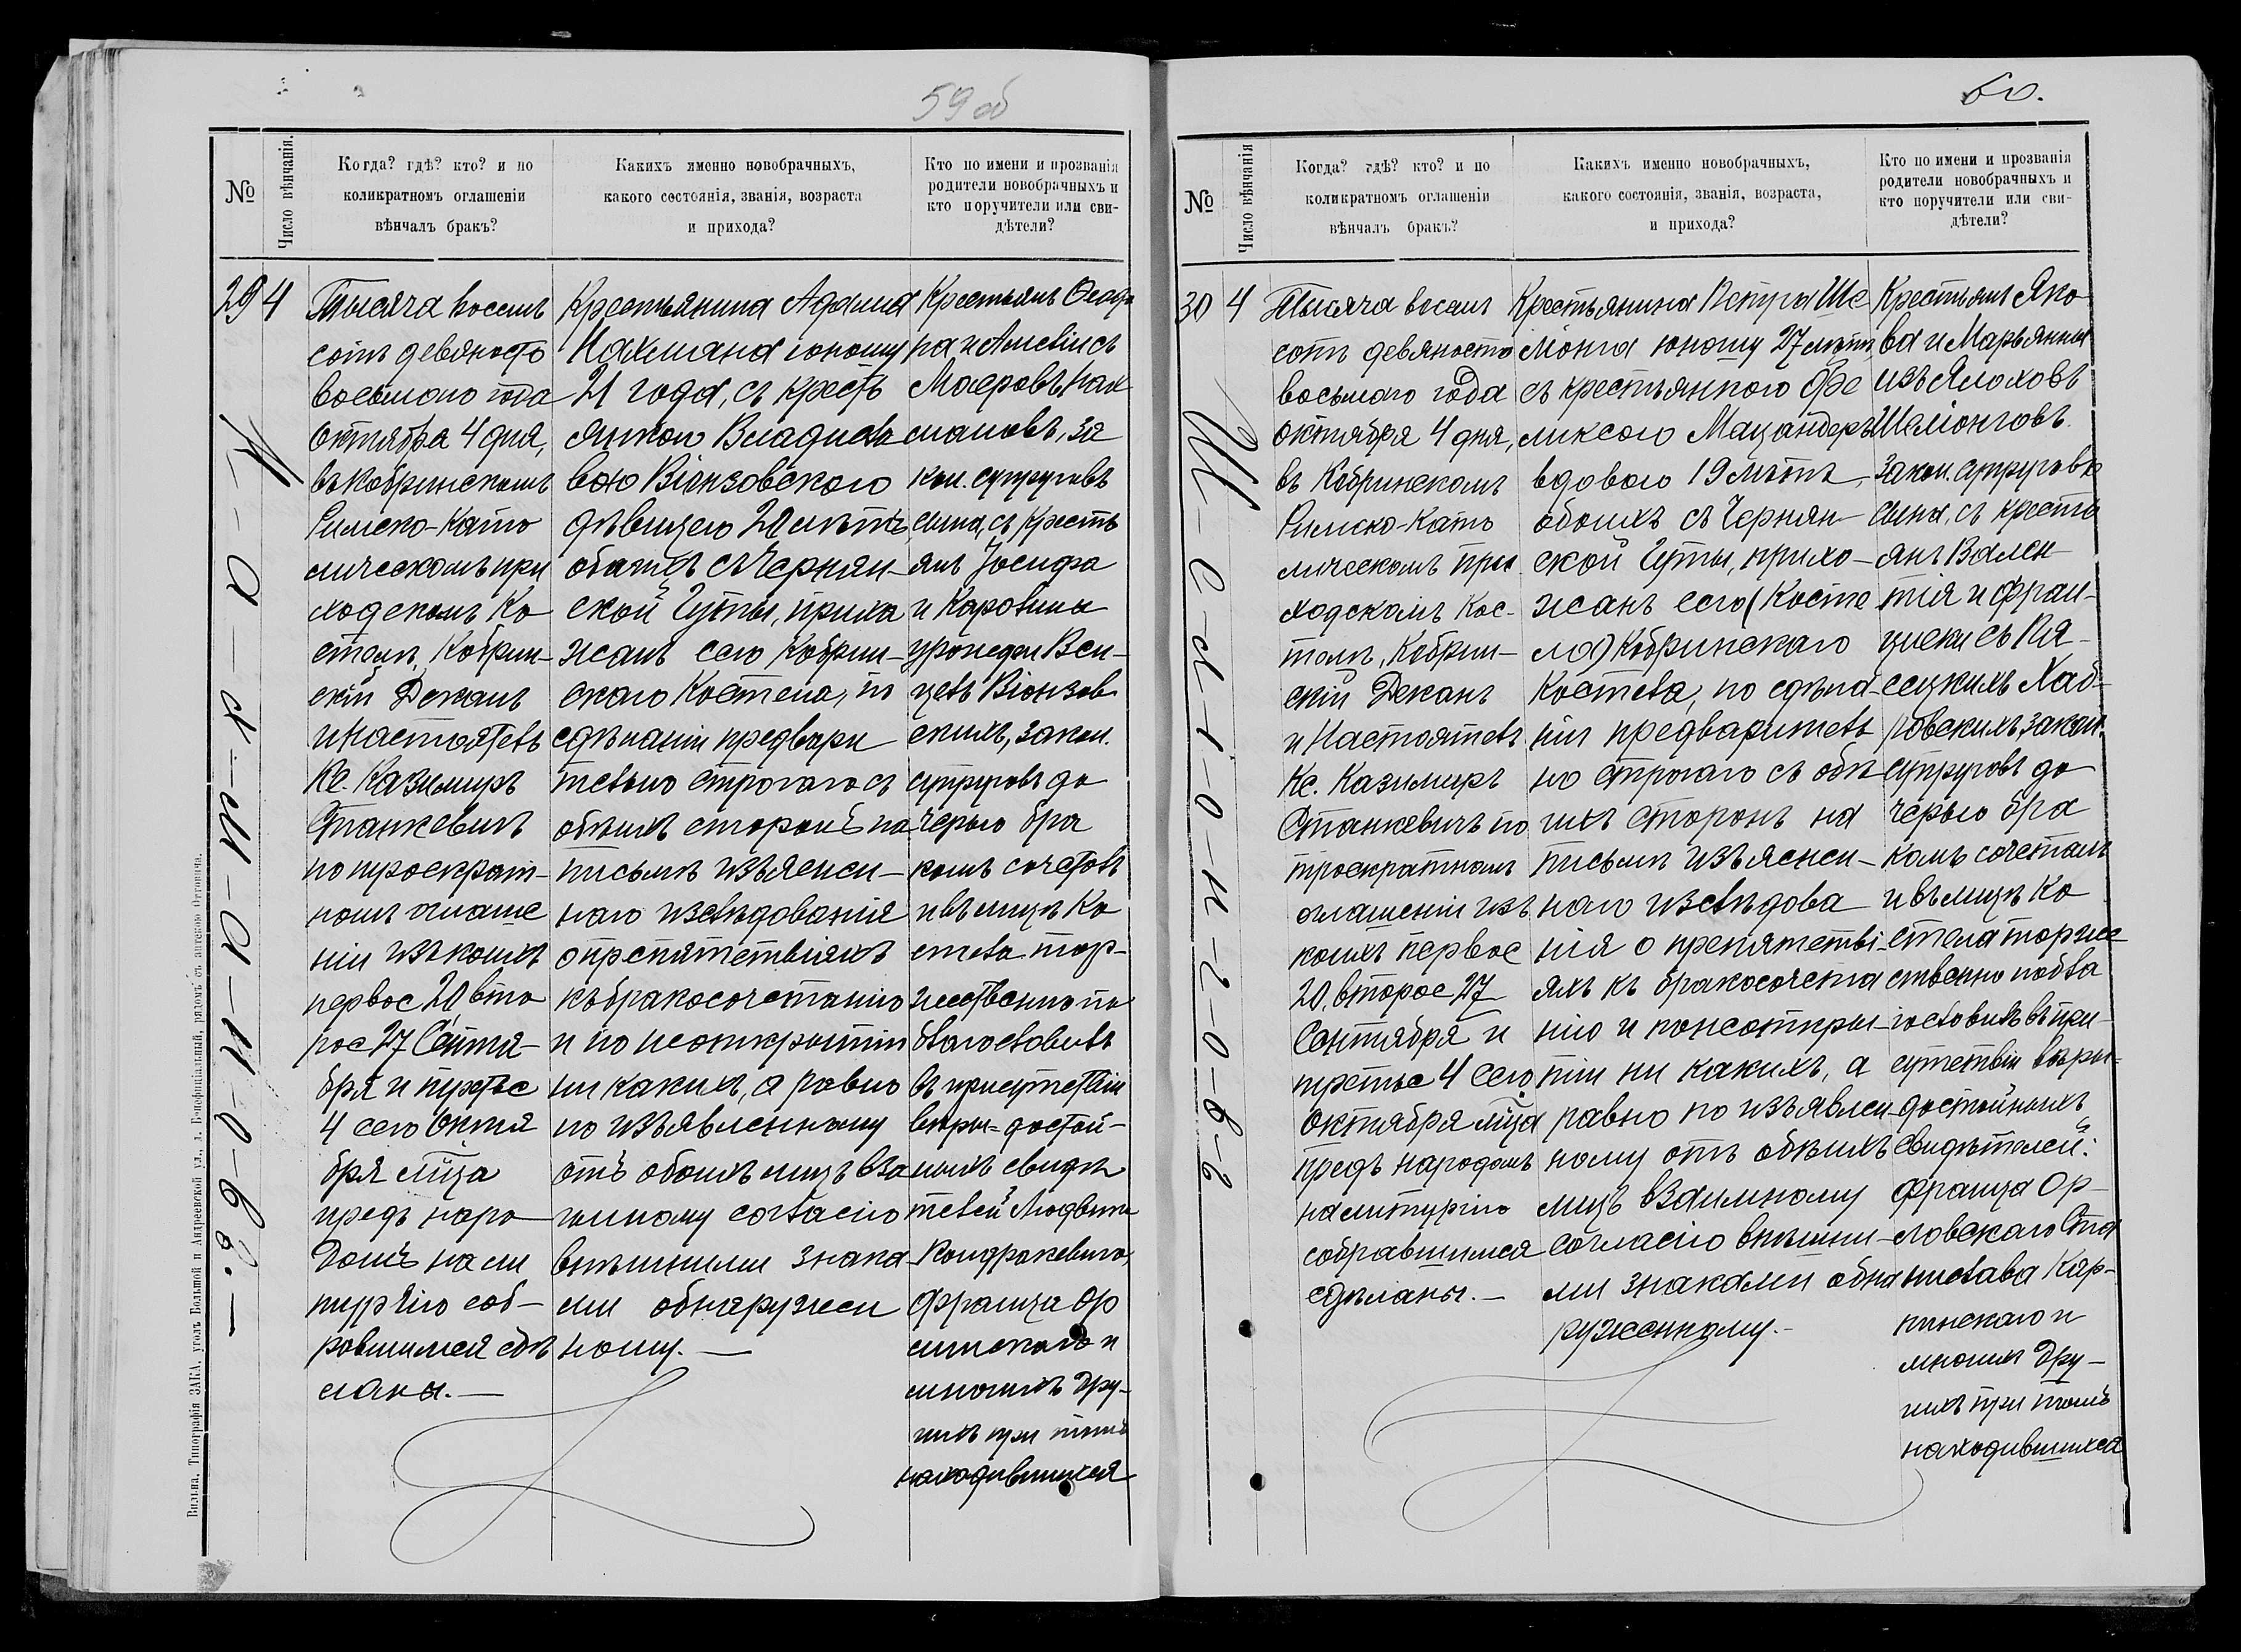 59 об
№
Число вѣнчанія.
Когда? гдѣ? кто? и по
коликратномъ оглашеніи
вѣнчалъ бракъ?
Какихъ именно новобрачныхъ,
какого состоянія, званія, возраста
и прихода?
Кто по имени и прозванія
родители новобрачныхъ и
кто поручители или сви-
дѣтели?
29
4
Тысяча восемь
сотъ девяносто
восьмого года
Октября 4 дня,
въ Кобринскомъ
Римско-Като
лическомъ при
ходскомъ Ко
стелѣ, Кобрин-
скій Деканъ
и Настоятель
Кс. Казимиръ
Станкевичъ
по троекрат-
номъ оглаше
ніи изъ коихъ
первое 20, вто
рое 27 Сентя-
бря и третье
4 сего Октя
бря мѣца
предъ наро
домъ на ли
тургію соб-
равшимся сдѣ
ланы.—
Крестьянина Адама
Нахмана юношу
21 года, съ кресть
янкою Владисла
вою Віонзовского
дѣвицею 20 лѣтъ
обаихъ съ Чернян-
ской Гуты, прихо
жанъ сего Кобрин-
скаго Костела, по
сдѣланіи предвари
тельно строгаго съ
обѣихъ сторонъ на
письмѣ изъясне-
наго изслѣдованія
о препятствіяхъ
къ бракосочетанію
и по неоткрытіи
ни какихъ, а равно
по изъявленному
отъ обоихъ лицъ вза
имному согласію
внѣшними знака
ми обнаружен
ному.—
Крестьянъ Ѳеодо
ра и Амеліи съ
Маеровъ Нах
мановъ, за
кон. супруговъ
сына, съ кресть
янъ Іосифа
и Каролины
урожден Вен-
цель Віонзов
скихъ, закон.
супруговъ до
черью бра
комъ сочеталъ
и въ лицѣ Ко
стела тор-
жественно по
благословилъ
въ присутствіи
вѣры-достой-
ныхъ свидѣ
телей Людвика
Кондракевича,
Франца Ор
и
многихъ дру-
гихъ при томъ
находившихся
Вильна, Типографія ЗАКА, уголъ Большой и Андреевской ул., д. Бонифраціальный, рядомъ съ аптекою Отговича.
60.
№
Число вѣнчанія
Когда? гдѣ? кто? и по
коликратномъ оглашеніи
вѣнчалъ бракъ?
Какихъ именно новобрачныхъ,
какого состоянія, званія, возраста,
и прихода?
Кто по имени и прозванія
родители новобрачныхъ и
кто поручители или сви-
дѣтели?
30
4
Тысяча восемь
сотъ девяносто
восьмаго года
Октября 4 дня,
въ Кобринскомъ
Римско-Като
лическомъ при
ходскомъ Кос-
телѣ, Кобрин-
скій Деканъ
и Настоятель
Кс. Казимиръ
Станкевичъ по
троекратномъ
оглашеніи изъ
коихъ первое
20, второе 27
Сентября и
третье 4 сего
Октября мѣца
предъ народомъ
на литургію
собравшимся
сдѣланы.—
Крестьянина Петра Ше
міонга юношу 27 лѣтъ
съ крестьянкою Фе
ликсою Мацандеръ
вдовою 19 лѣтъ,
обоихъ съ Чернян-
ской Гуты, прихо-
жанъ сего (Косте
ла) Кобринскаго
Костела, по сдѣла-
ніи предваритель
но строгаго съ обѣ
ихъ сторонъ на
письмѣ изъяснен-
наго изслѣдова
нія о препятстві-
яхъ къ бракосочета
нію и по неоткры-
тіи ни какихъ, а
равно по изъявлен
ному отъ обѣихъ
лицъ взаимному
согласію внѣшни-
ми знаками обна
руженному.—
Крестьянъ Яко
ва и Марьянны
изъ Ялоховъ
Шеміонговъ
закон. супруговъ
сына, съ кресть
янъ Вален
тія и Фран-
циски съ Пя-
сецкихъ Хаб-
ровскихъ закон.
супруговъ до
черью бра
комъ сочеталъ
и въ лицѣ Ко
стела торже
ственно побла
гословилъ въ при-
сутствіи вѣры-
достойныхъ
свидѣтелей:
Франца Ор-
ловскаго Ста
нислава Кар-
пинскаго и
многихъ дру-
гихъ при томъ
находившихся